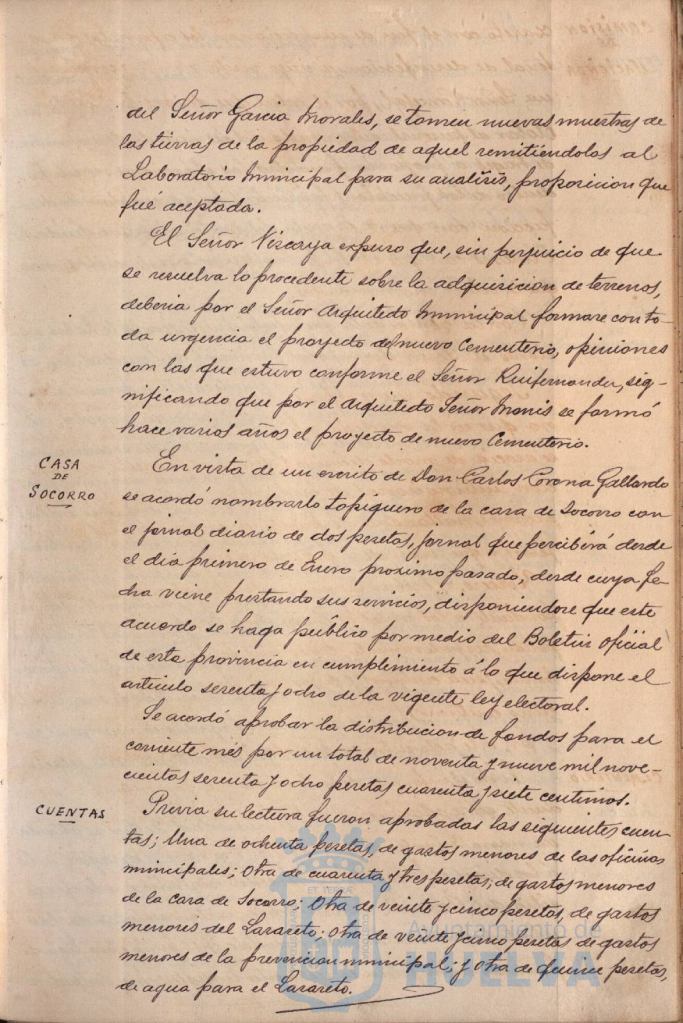 del Señor Garcia Morales, se tomen nuevas muestras de
las tierras de la propiedad de aquel remitiéndolas al
Laboratorio Municipal para su analisis, proposicion que
fué aceptada.
El Señor Viscaya expuso que, sin perjuicio de que
se resuelva lo procedente sobre la adquisicion de terrenos,
deberia por el Señor Arquitecto Municipal formarse con to-
da urgencia el proyecto del nuevo Cementerio, opiniones
con las que estuvo conforme el Señor Ruifernandez, sig-
nificando que por el Arquitecto Señor Monis se formó
hace varios años el proyecto de nuevo Cementerio.
CASA
DE
SOCORRO
En vista de un escrito de Don Carlos Corona Gallardo
se acordó nombrarlo topiquero de la casa de Socorro con
el jornal diario de dos pesetas, jornal que percibirá desde
el dia primero de Enero proximo pasado, desde cuya fe-
cha viene prestando sus servicios, disponiendose que este
acuerdo se haga público por medio del Boletin oficial
de esta provincia en cumplimiento á lo que dispone el
articulo sesenta y ocho de la vigente ley electoral.
Se acordó aprobar la distribucion de fondos para el
corriente més por un total de noventa y nueve mil nove-
cientas sesenta y ocho pesetas cuarenta y siete centimos.
CUENTAS
Previa su lectura fueron aprobadas las siguientes cuen-
tas; Una de ochenta pesetas, de gastos menores de las oficinas
municipales; otra de cuarenta y tres pesetas, de gastos menores
de la casa de Socorro; Otra de veinte y cinco pesetas, de gastos
menores del Lazareto; otra de veinte y cinco pesetas de gastos
menores de la prevencion municipal; y otra de quince pesetas,
de agua para el Lazareto.
Ayuntamiento de
HUELVA